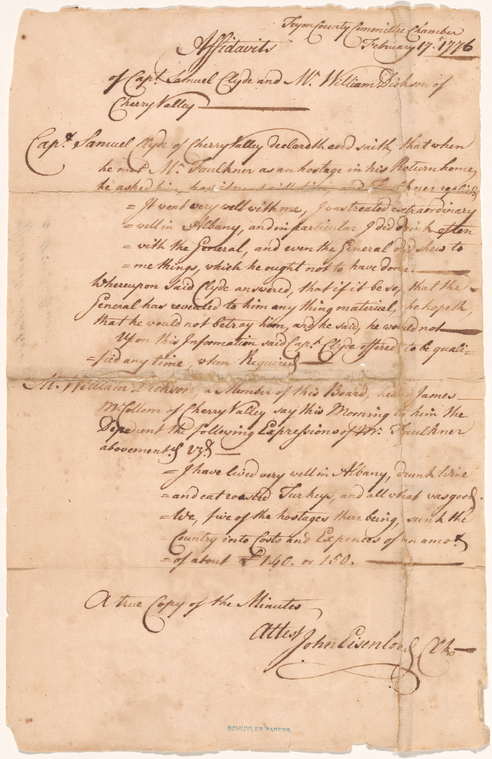 Tryon County Committee Chamber
February 17. 1776
Affidavits
of Capt. Samuel Clyde and Mr. William Dickson of
Cherry Valley
Capt. Samuel Clyde of Cherry Valley declareth and saith, that when
he met Mr. Faulkner as an hostage in his Return home,
he asked him, how it went with him, and Faulkner replied
= It went very well with me, I was treated extraordinary
= well in Albany, and in particular I did drink often
= with the General, and even the General did shew to
= me things, which he ought not to have done.
Whereupon said Clyde answered, that if it be so, that the
General has revealed to him any thing material, he hopeth,
that he would not betray him, and he said, he would not
Upon this Information said Capt. Clyde offered to be quali=
=fied any time, when Required
Mr. William Dickson, a Member of this Board, heard James
McCollom of Cherry Valley say this Morning to him the
Deponent the following Expressions of Mr. Faulkner
abovementd. vizt.
= I have lived very well in Albany, drunk Wine
= and eat roasted Turkeys, and all what was good.
= We, five of the hostages there being, sunk the
= Country into Costs and Expences of an amot.
= of about £140. or 150.
A true Copy of the Minutes
Attest
John Eisenlord Clk
SCHUYLER PAPERS